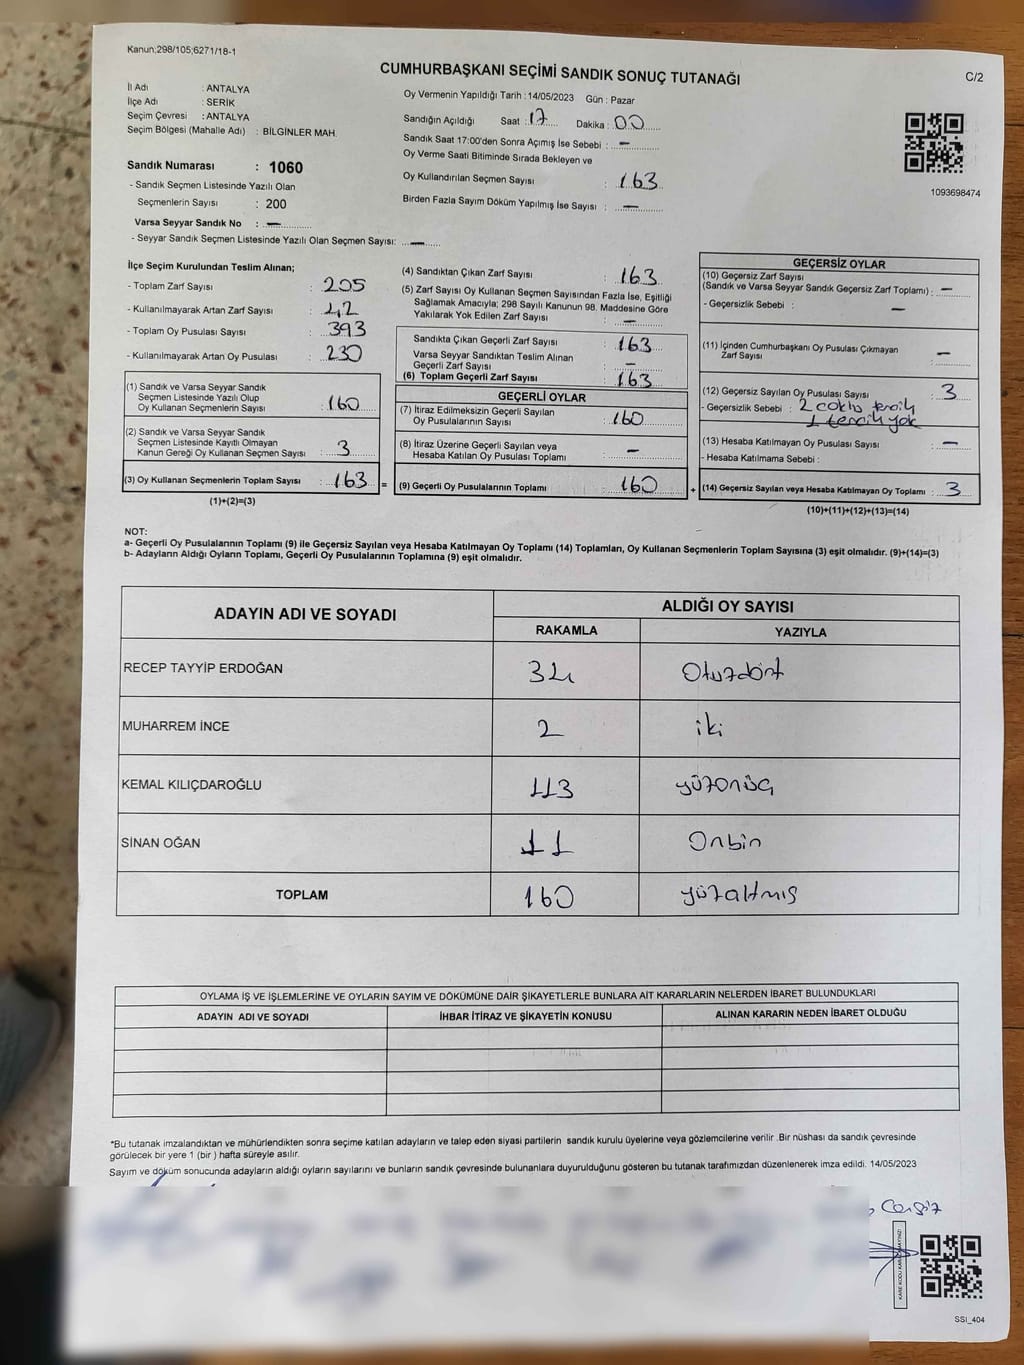 Kanun;298/105;6271/18-1
CUMHURBAŞKANI SEÇİMİ SANDIK SONUÇ TUTANAĞI
C/2
İl Adı : ANTALYA
İlçe Adı : SERİK
Seçim Çevresi : ANTALYA
Seçim Bölgesi (Mahalle Adı) : BİLGİNLER MAH.
Sandık Numarası : 1060
- Sandık Seçmen Listesinde Yazılı Olan
Seçmenlerin Sayısı : 200
Varsa Seyyar Sandık No : —
- Seyyar Sandık Seçmen Listesinde Yazılı Olan Seçmen Sayısı: —
Oy Vermenin Yapıldığı Tarih : 14/05/2023 Gün : Pazar
Sandığın Açıldığı Saat : 17 Dakika : 00
Sandık Saat 17:00'den Sonra Açımış İse Sebebi : —
Oy Verme Saati Bitiminde Sırada Bekleyen ve
Oy Kullandırılan Seçmen Sayısı : 163
Birden Fazla Sayım Döküm Yapılmış İse Sayısı : —
1093698474
İlçe Seçim Kurulundan Teslim Alınan;
- Toplam Zarf Sayısı : 205
- Kullanılmayarak Artan Zarf Sayısı : 42
- Toplam Oy Pusulası Sayısı : 393
- Kullanılmayarak Artan Oy Pusulası : 230
(1) Sandık ve Varsa Seyyar Sandık
Seçmen Listesinde Yazılı Olup
Oy Kullanan Seçmenlerin Sayısı : 160
(2) Sandık ve Varsa Seyyar Sandık
Seçmen Listesinde Kayıtlı Olmayan
Kanun Gereği Oy Kullanan Seçmen Sayısı : 3
(3) Oy Kullanan Seçmenlerin Toplam Sayısı : 163 =
(1)+(2)=(3)
(4) Sandıktan Çıkan Zarf Sayısı : 163
(5) Zarf Sayısı Oy Kullanan Seçmen Sayısından Fazla İse, Eşitliği
Sağlamak Amacıyla; 298 Sayılı Kanunun 98. Maddesine Göre
Yakılarak Yok Edilen Zarf Sayısı : —
Sandıkta Çıkan Geçerli Zarf Sayısı : 163
Varsa Seyyar Sandıktan Teslim Alınan
Geçerli Zarf Sayısı : —
(6) Toplam Geçerli Zarf Sayısı : 163
GEÇERLİ OYLAR
(7) İtiraz Edilmeksizin Geçerli Sayılan
Oy Pusulalarının Sayısı : 160
(8) İtiraz Üzerine Geçerli Sayılan veya
Hesaba Katılan Oy Pusulası Toplamı : —
(9) Geçerli Oy Pusulalarının Toplamı : 160 +
GEÇERSİZ OYLAR
(10) Geçersiz Zarf Sayısı
(Sandık ve Varsa Seyyar Sandık Geçersiz Zarf Toplamı) : —
- Geçersizlik Sebebi : —
(11) İçinden Cumhurbaşkanı Oy Pusulası Çıkmayan
Zarf Sayısı —
(12) Geçersiz Sayılan Oy Pusulası Sayısı : 3
- Geçersizlik Sebebi : 2 coklu tercih
1 tercih yok
(13) Hesaba Katılmayan Oy Pusulası Sayısı : —
- Hesaba Katılmama Sebebi :
(14) Geçersiz Sayılan veya Hesaba Katılmayan Oy Toplamı : 3
(10)+(11)+(12)+(13)=(14)
NOT:
a- Geçerli Oy Pusulalarının Toplamı (9) ile Geçersiz Sayılan veya Hesaba Katılmayan Oy Toplamı (14) Toplamları, Oy Kullanan Seçmenlerin Toplam Sayısına (3) eşit olmalıdır. (9)+(14)=(3)
b- Adayların Aldığı Oyların Toplamı, Geçerli Oy Pusulalarının Toplamına (9) eşit olmalıdır.
ADAYIN ADI VE SOYADI
ALDIĞI OY SAYISI
RAKAMLA YAZIYLA
RECEP TAYYİP ERDOĞAN 34 Otuzdört
MUHARREM İNCE 2 iki
KEMAL KILIÇDAROĞLU 113 yüzonüç
SİNAN OĞAN 11 Onbir
TOPLAM 160 yüzaltmış
OYLAMA İŞ VE İŞLEMLERİNE VE OYLARIN SAYIM VE DÖKÜMÜNE DAİR ŞİKAYETLERLE BUNLARA AİT KARARLARIN NELERDEN İBARET BULUNDUKLARI
ADAYIN ADI VE SOYADI İHBAR İTİRAZ VE ŞİKAYETİN KONUSU ALINAN KARARIN NEDEN İBARET OLDUĞU
*Bu tutanak imzalandıktan ve mühürlendikten sonra seçime katılan adayların ve talep eden siyasi partilerin sandık kurulu üyelerine veya gözlemcilerine verilir .Bir nüshası da sandık çevresinde
görülecek bir yere 1 (bir ) hafta süreyle asılır.
Sayım ve döküm sonucunda adayların aldığı oyların sayılarını ve bunların sandık çevresinde bulunanlara duyurulduğunu gösteren bu tutanak tarafımızdan düzenlenerek imza edildi. 14/05/2023
SSI_404